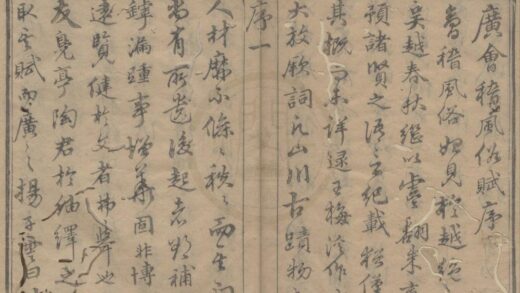 廣會稽風俗賦序
會稽風俗始見於越絕
吳越春秋繼以虞翻朱育
預諸賢之語言紀載猶僅
其概而未詳逮王梅溪作
大放厥詞凡山川古蹟物
序一
人材靡不條之秩之而生
尚有所遺後起者或補
鏬漏踵事增華固非博
遠覽健於文者弗辦也
友凫亭陶君於紬繹之
取其賦而廣之揚子雲曰